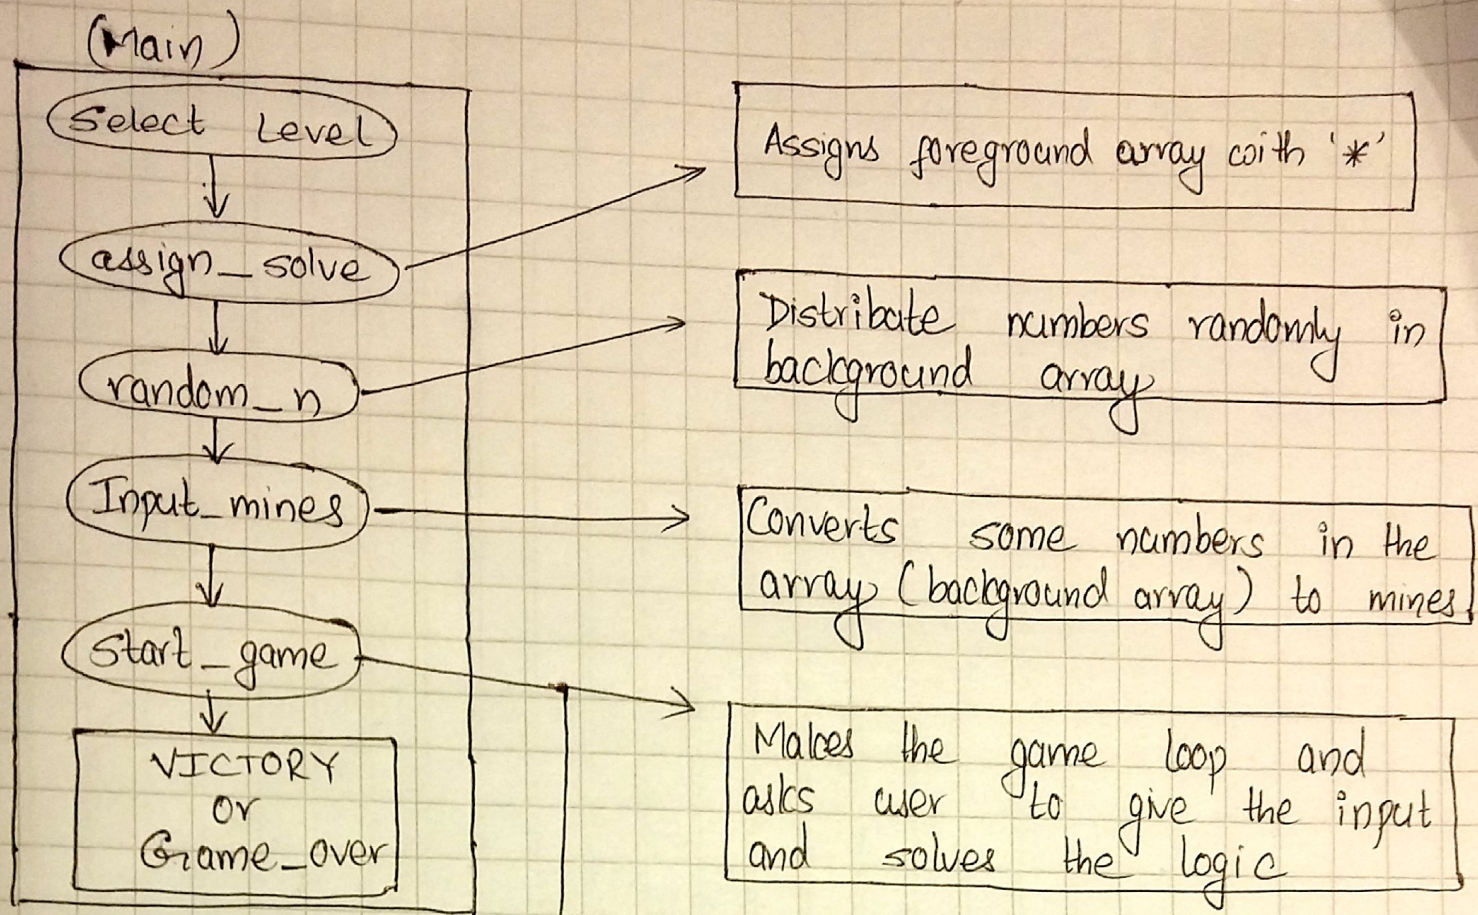 (Main)
Select Level
assign_solve
random_n
Input_mines
Start_game
VICTORY
or
Game_over
Assigns foreground array with '*'
Distribute numbers randomly in
background array
Converts some numbers in the
array (background array) to mines.
Makes the game loop and
asks user to give the input
and solves the logic